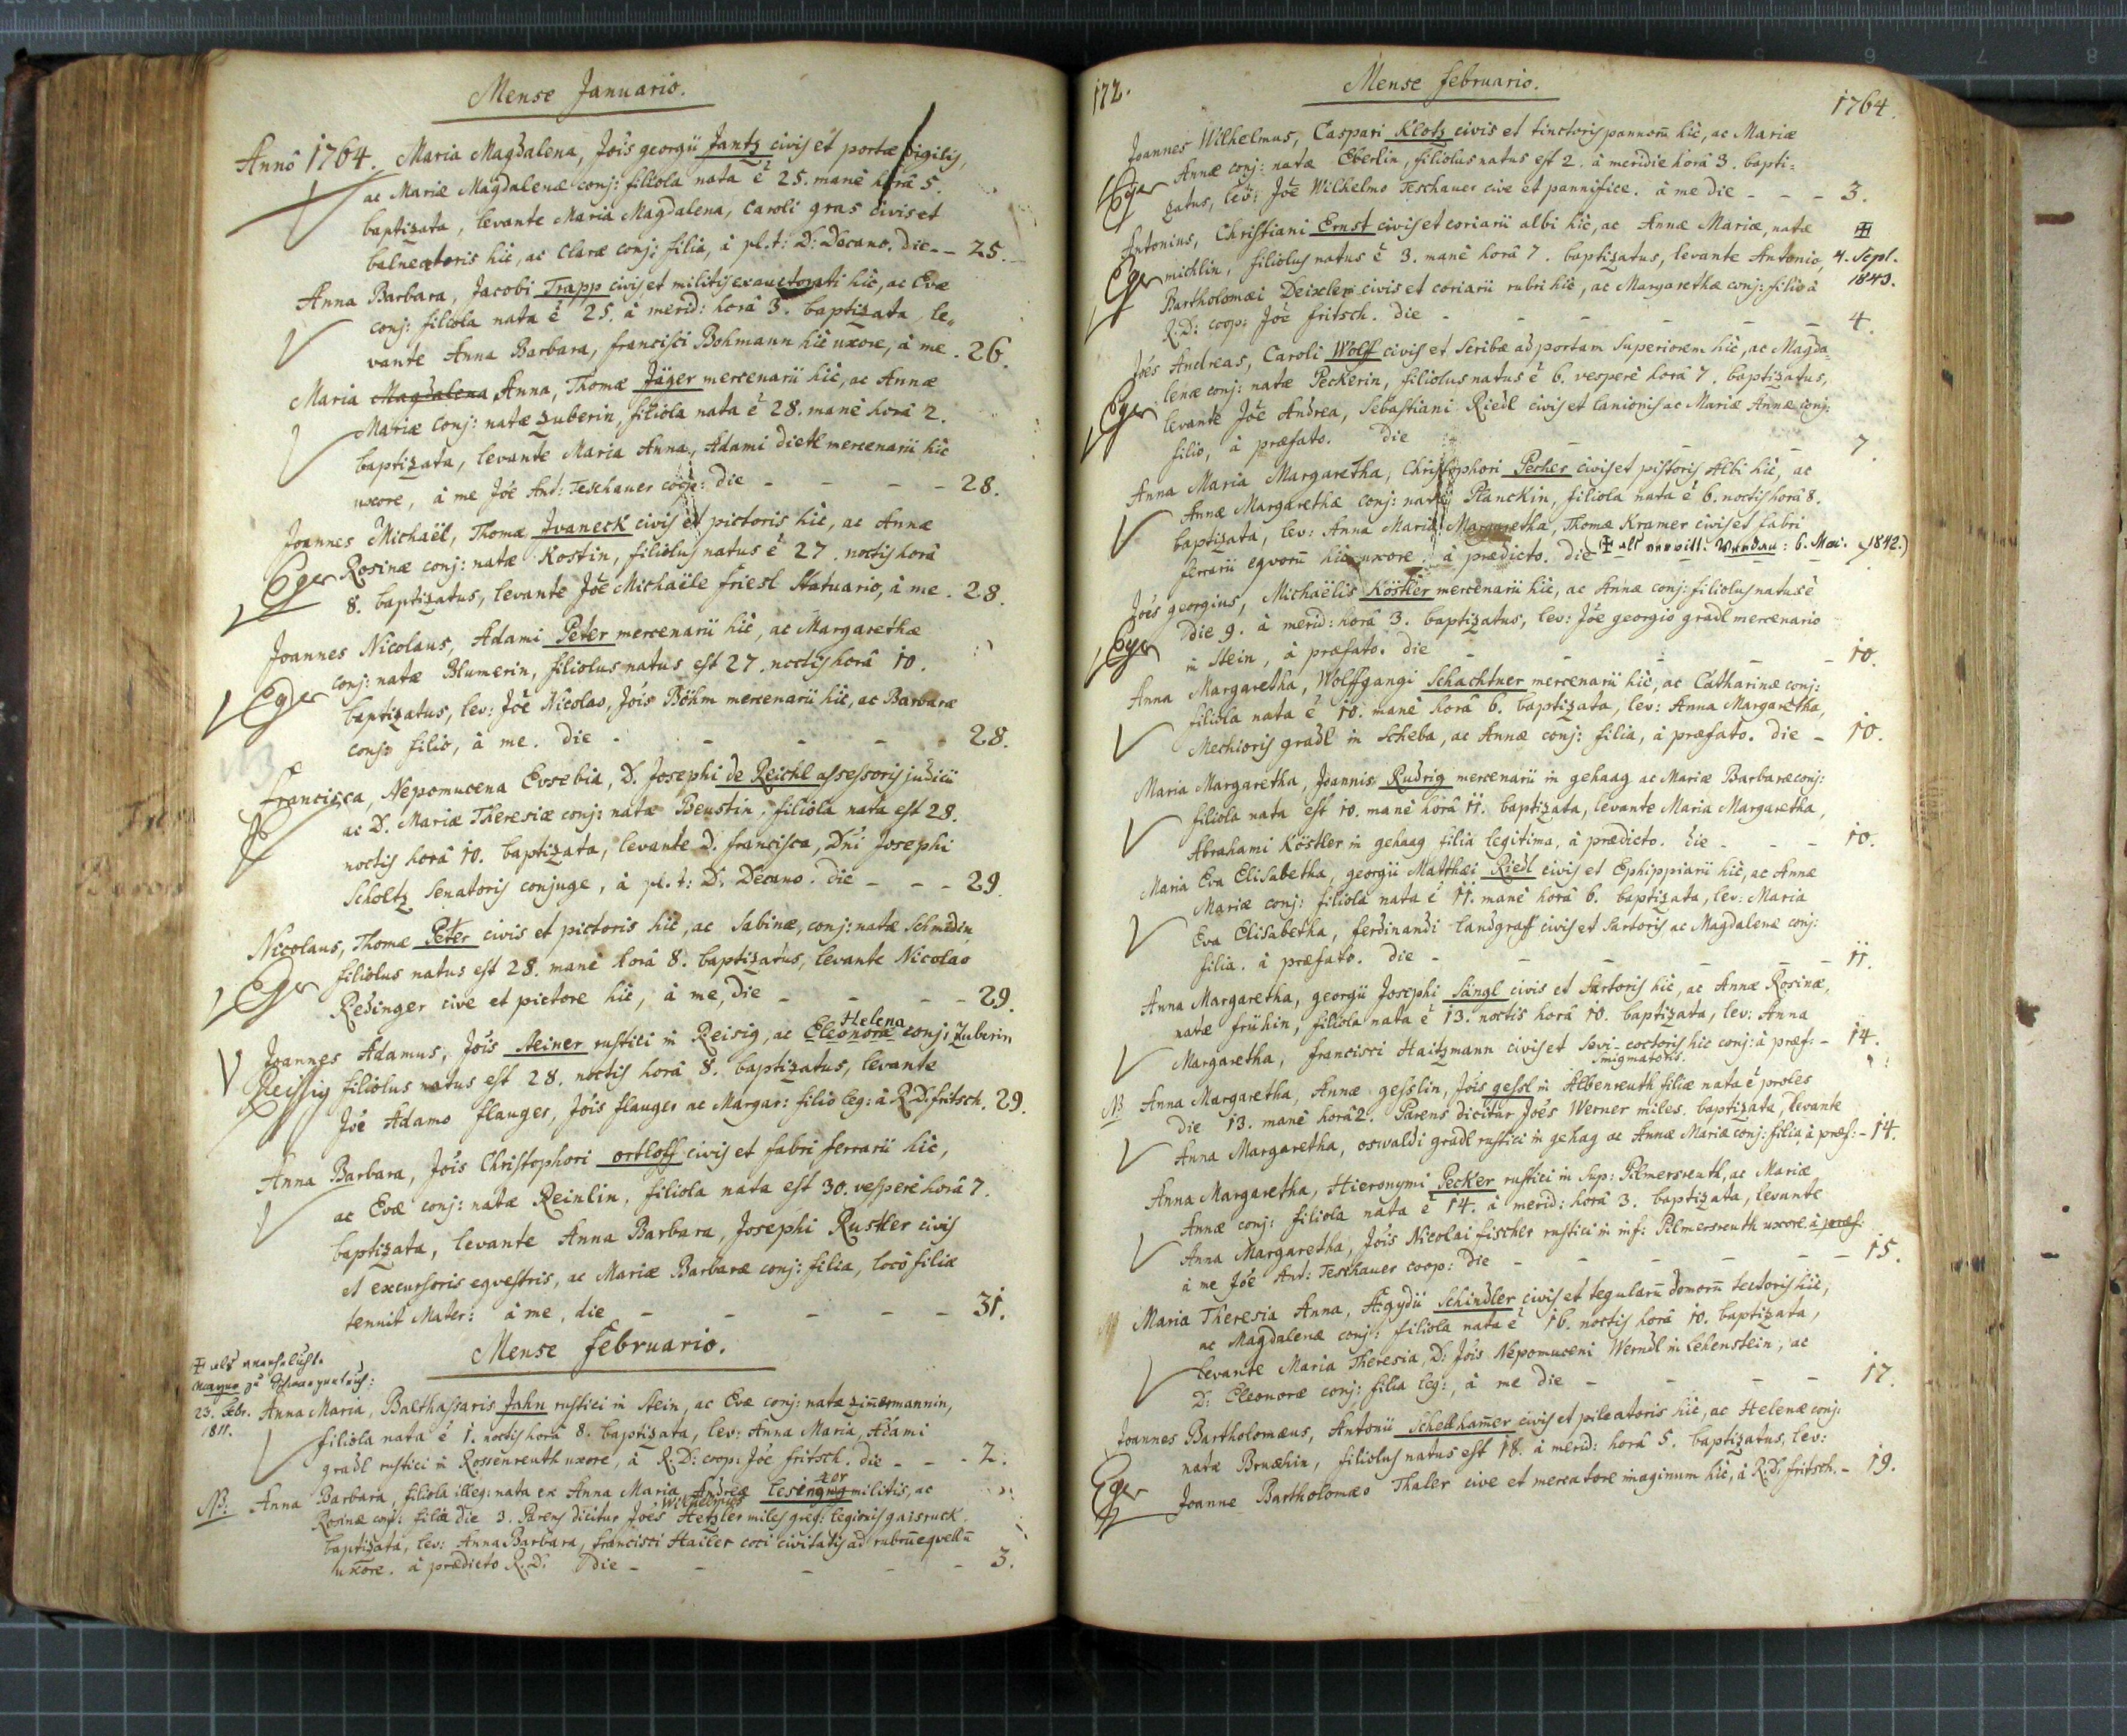 Mense Januario.
Anno 1764. Maria Magdalena, Jois georgii Jantz civis et portæ vigilis,
ac Mariæ Magdalenæ conj: filiola nata ē 25. manè horâ 5.
baptizata, levante Maria Magdalena, Caroli gras civis et
balneatoris hic, ac Claræ conj: filia, à pl. t: D: Decano. die - - 25.
Anna Barbara, Jacobi Trapp civis et militis exauctorati hic, ac Evæ
conj: filiola nata ē 25. à merid: horâ 3. baptizata, le„
vante Anna Barbara, francisci Bohmann hic uxore, à me. 26.
Maria Magdalena Anna, Thomæ Jäger mercenarii hic, ac Annæ
Mariæ conj: natæ zuberin, filiola nata ē 28. manè horâ 2.
baptizata, levante Maria Anna, Adami dietl mercenarii hic
uxore, à me Jōe Ant: Teschauer coop: die - - - - 28.
Joannes Michaël, Thomæ Jvaneck civis et pictoris hic, ac Annæ
Eger Rosinæ conj: natæ Kostin, filiolus natus ē 27. noctis horâ
8. baptizatus, levante Jōe Michaële friesl Statuario, à me. 28.
Joannes Nicolaus, Adami Peter mercenarii hic, ac Margarethæ
Eger conj: natæ Blumerin, filiolus natus est 27. noctis horâ 10.
baptizatus, lev: Jōe Nicolao, Jois Böhm mercenarii hic, ac Barbaræ
conj: filio, à me. die - - - - 28.
Francisca, Nepomucena Eusebia, D. Josephi de Reichl assessoris judicii
ac D. Mariæ Theresiæ conj: natæ Beustin, filiola nata est 28.
noctis horâ 10. baptizata, levante D. francisca, Dni Josephi
Scholtz Senatoris conjuge, à pl. t: D: Decano. die - - - 29.
Nicolaus, Thomæ Peter civis et pictoris hic, ac Sabinæ, conj: natæ Schmidin,
Eger filiolus natus est 28. manè horâ 8. baptizatus, levante Nicolao
Redinger cive et pictore hic, à me, die - - - - 29.
Helena
Joannes Adamus, Jois steiner rustici in Reisig, ac Eleonoræ conj: Zuberin
Reissig filiolus natus est 28. noctis horâ 8. baptizatus, levante
Jōe Adamo flauger, Jois flauger ac Margar: filio leg: à R. D. fritsch. 29.
Anna Barbara, Jois Christophori ortloff civis et fabri ferrarii hic,
ac Evæ conj: natæ Reinlin, filiola nata est 30. vesperè horâ 7.
baptizata, levante Anna Barbara, Josephi Rustler civis
et excursoris eqvestris, ac Mariæ Barbaræ conj: filia, loco filiæ
tenuit Mater: à me, die - - - - - 31.
Mense februario.
23. Febr.
1811.
Anna Maria, Balthassaris Jahn rustici in Stein, ac Evæ conj: natæ zimermannin,
filiola nata ē 1. noctis horâ 8. baptizata, lev: Anna Maria, Adami
gradl rustici in Rossenreuth uxore, à R: D: coop: Jōe fritsch. die - - - 2.
NB: Anna Barbara, filiola illeg: nata ex Anna Maria, Andreæ militis, ac
Wilhelmus
Rosinæ conj: filia die 3. Parens dicitur Joēs Hetzler miles greg: legionis gaisruck.
baptizata, lev: Anna Barbara, francisci Hailer coci civitatis ad rubrū eqvellū
uxore. à prædicto R. D. die - - - - 3.
172.
Mense februario.
1764.
Joannes Wilhelmus, Caspari Klotz civis et tinctoris pannorū hic, ac Mariæ
Eger Annæ conj: natæ Eberlin, filiolus natus est 2. à meridie horâ 3. bapti=
zatus, lev: Jōe Wilhelmo Teschauer cive et pannifice. à me die - - - 3.
Antonius, Christiani Ernst civis et coriarii albi hic, ac Annæ Mariæ, natæ
Eger michlin, filiolus natus ē 3. manè horâ 7. baptizatus, levante Antonio,
4. Sept.
1843.
Bartholomæi Deixler civis et coriarii rubri hic, ac Margarethæ conj: filio à
R: D: coop: Jōe fritsch. die - - - - - 4.
Joēs Andreas, Caroli Wolff civis et Scribæ ad portam Superiorem hic, ac Magda=
Eger lenæ conj: natæ Peckerin, filiolus natus ē 6. vesperè horâ 7. baptizatus,
levante Jōe Andrea, Sebastiani Riedl civis et lanionis ac Mariæ Annæ conj:
filio, à præfato. die - - - 7.
Anna Maria Margaretha, Christophori Pecher civis et pistoris Albi hic, ac
Annæ Margarethæ conj: natæ Planckin, filiola nata ē 6. noctis horâ 8.
baptizata, lev: Anna Maria Margaretha, Thomæ Kramer civis et fabri
ferrarii eqvorū hic uxore. à prædicto. die - - 7.
6. 1842.)
Joēs georgius, Michaëlis Köstler mercenarii hic, ac Annæ conj: filiolus natus ē
Eger die 9. à merid: horâ 3. baptizatus, lev: Jōe georgio gradl mercenario
in Stein, à præfato. die - - - - 10.
Anna Margaretha, Wolffgangi Schachtner mercenarii hic, ac Catharinæ conj:
filiola nata ē 10. manè horâ 6. baptizata, lev: Anna Margaretha,
Mechioris gradl in Scheba, ac Annæ conj: filia, à præfato. die - 10.
Maria Margaretha, Joannis Rudrig mercenarii in gehaag ac Mariæ Barbaræ conj:
filiola nata est 10. manè horâ 11. baptizata, levante Maria Margaretha,
Abrahami Köstler in gehaag filia legitima, à prædicto. die - - - 10.
Maria Eva Elisabetha, georgii Matthæi Riedl civis et Ephippiarii hic, ac Annæ
Mariæ conj: filiola nata ē 11. manè horâ 6. baptizata, lev: Maria
Eva Elisabetha, ferdinandi landgraff civis et Sartoris ac Magdalenæ conj:
filia. à præfato. die - - - - - 11.
Anna Margaretha, georgii Josephi Sängl civis et Sartoris hic, ac Annæ Rosinæ,
natæ frühin, filiola nata ē 13. noctis horâ 10. baptizata, lev: Anna
Margaretha, francisci Haitzmann civis et Sevi-coctoris hic conj: à præf: - 14.
smigmatoris.
NB Anna Margaretha, Annæ gesslin, Jois gessl in Albenreuth filiæ nata ē proles
die 13. manè horâ 2. Parens dicitur Joēs Werner miles. baptizata, levante
Anna Margaretha, oswaldi gradl rustici in gehag ac Annæ Mariæ conj: filia, à præf: - 14.
Anna Margaretha, Hieronymi Pecker rustici in Sup: Pilmersreuth, ac Mariæ
Annæ conj: filiola nata ē 14. à merid: horâ 3. baptizata, levante
Anna Margaretha, Jois Nicolai fischer rustici in inf: Pilmersreuth uxore. à præf:
à me Jōe Ant: Teschauer coop: die - - - - - 15.
Maria Theresia Anna, Ægydii Schindler civis et tegularū domorū tectoris hic,
ac Magdalenæ conj: filiola nata ē 16. noctis horâ 10. baptizata,
levante Maria Theresia, D: Jois Nepomuceni Werndl in Lehenstein, ac
D: Eleonoræ conj: filia leg:, à me die - - - - 17.
Joannes Bartholomæus, Antonii Schellham̄er civis et pileatoris hic, ac Helenæ conj:
Eger natæ Bruæhin, filiolus natus est 18. à merid: horâ 5. baptizatus, lev:
Joanne Bartholomæo Thaler cive et mercatore imaginum hic, à R: D: fritsch. - 19.